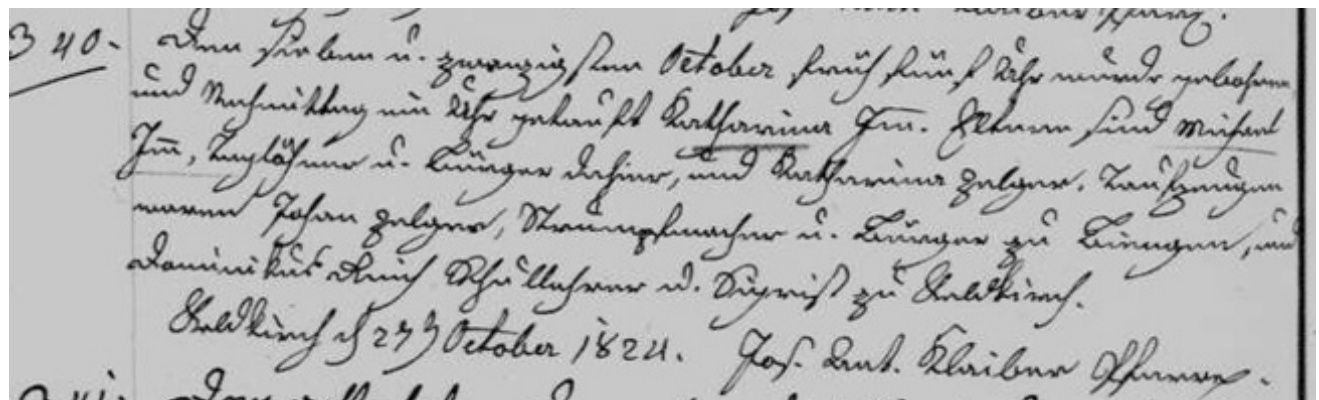 3 40.
Den sieben u. zwanzigsten October früh fünf Uhr wurde gebohren
und Nachmittag ein Uhr getauft Katharina Im̅. Eltern sind Michael
Im̅, Taglöhner u. Burger dahier, und Katharina Zelger. Taufzeugen
waren Johan Zelger, Strumpfmacher u. Burger zu Biengen, und
Dominikus Schullehrer u. Sigrist zu Feldkirch.
Feldkirch d 27 October 1824. Jos. Ant. Klaiber Pfarrer.